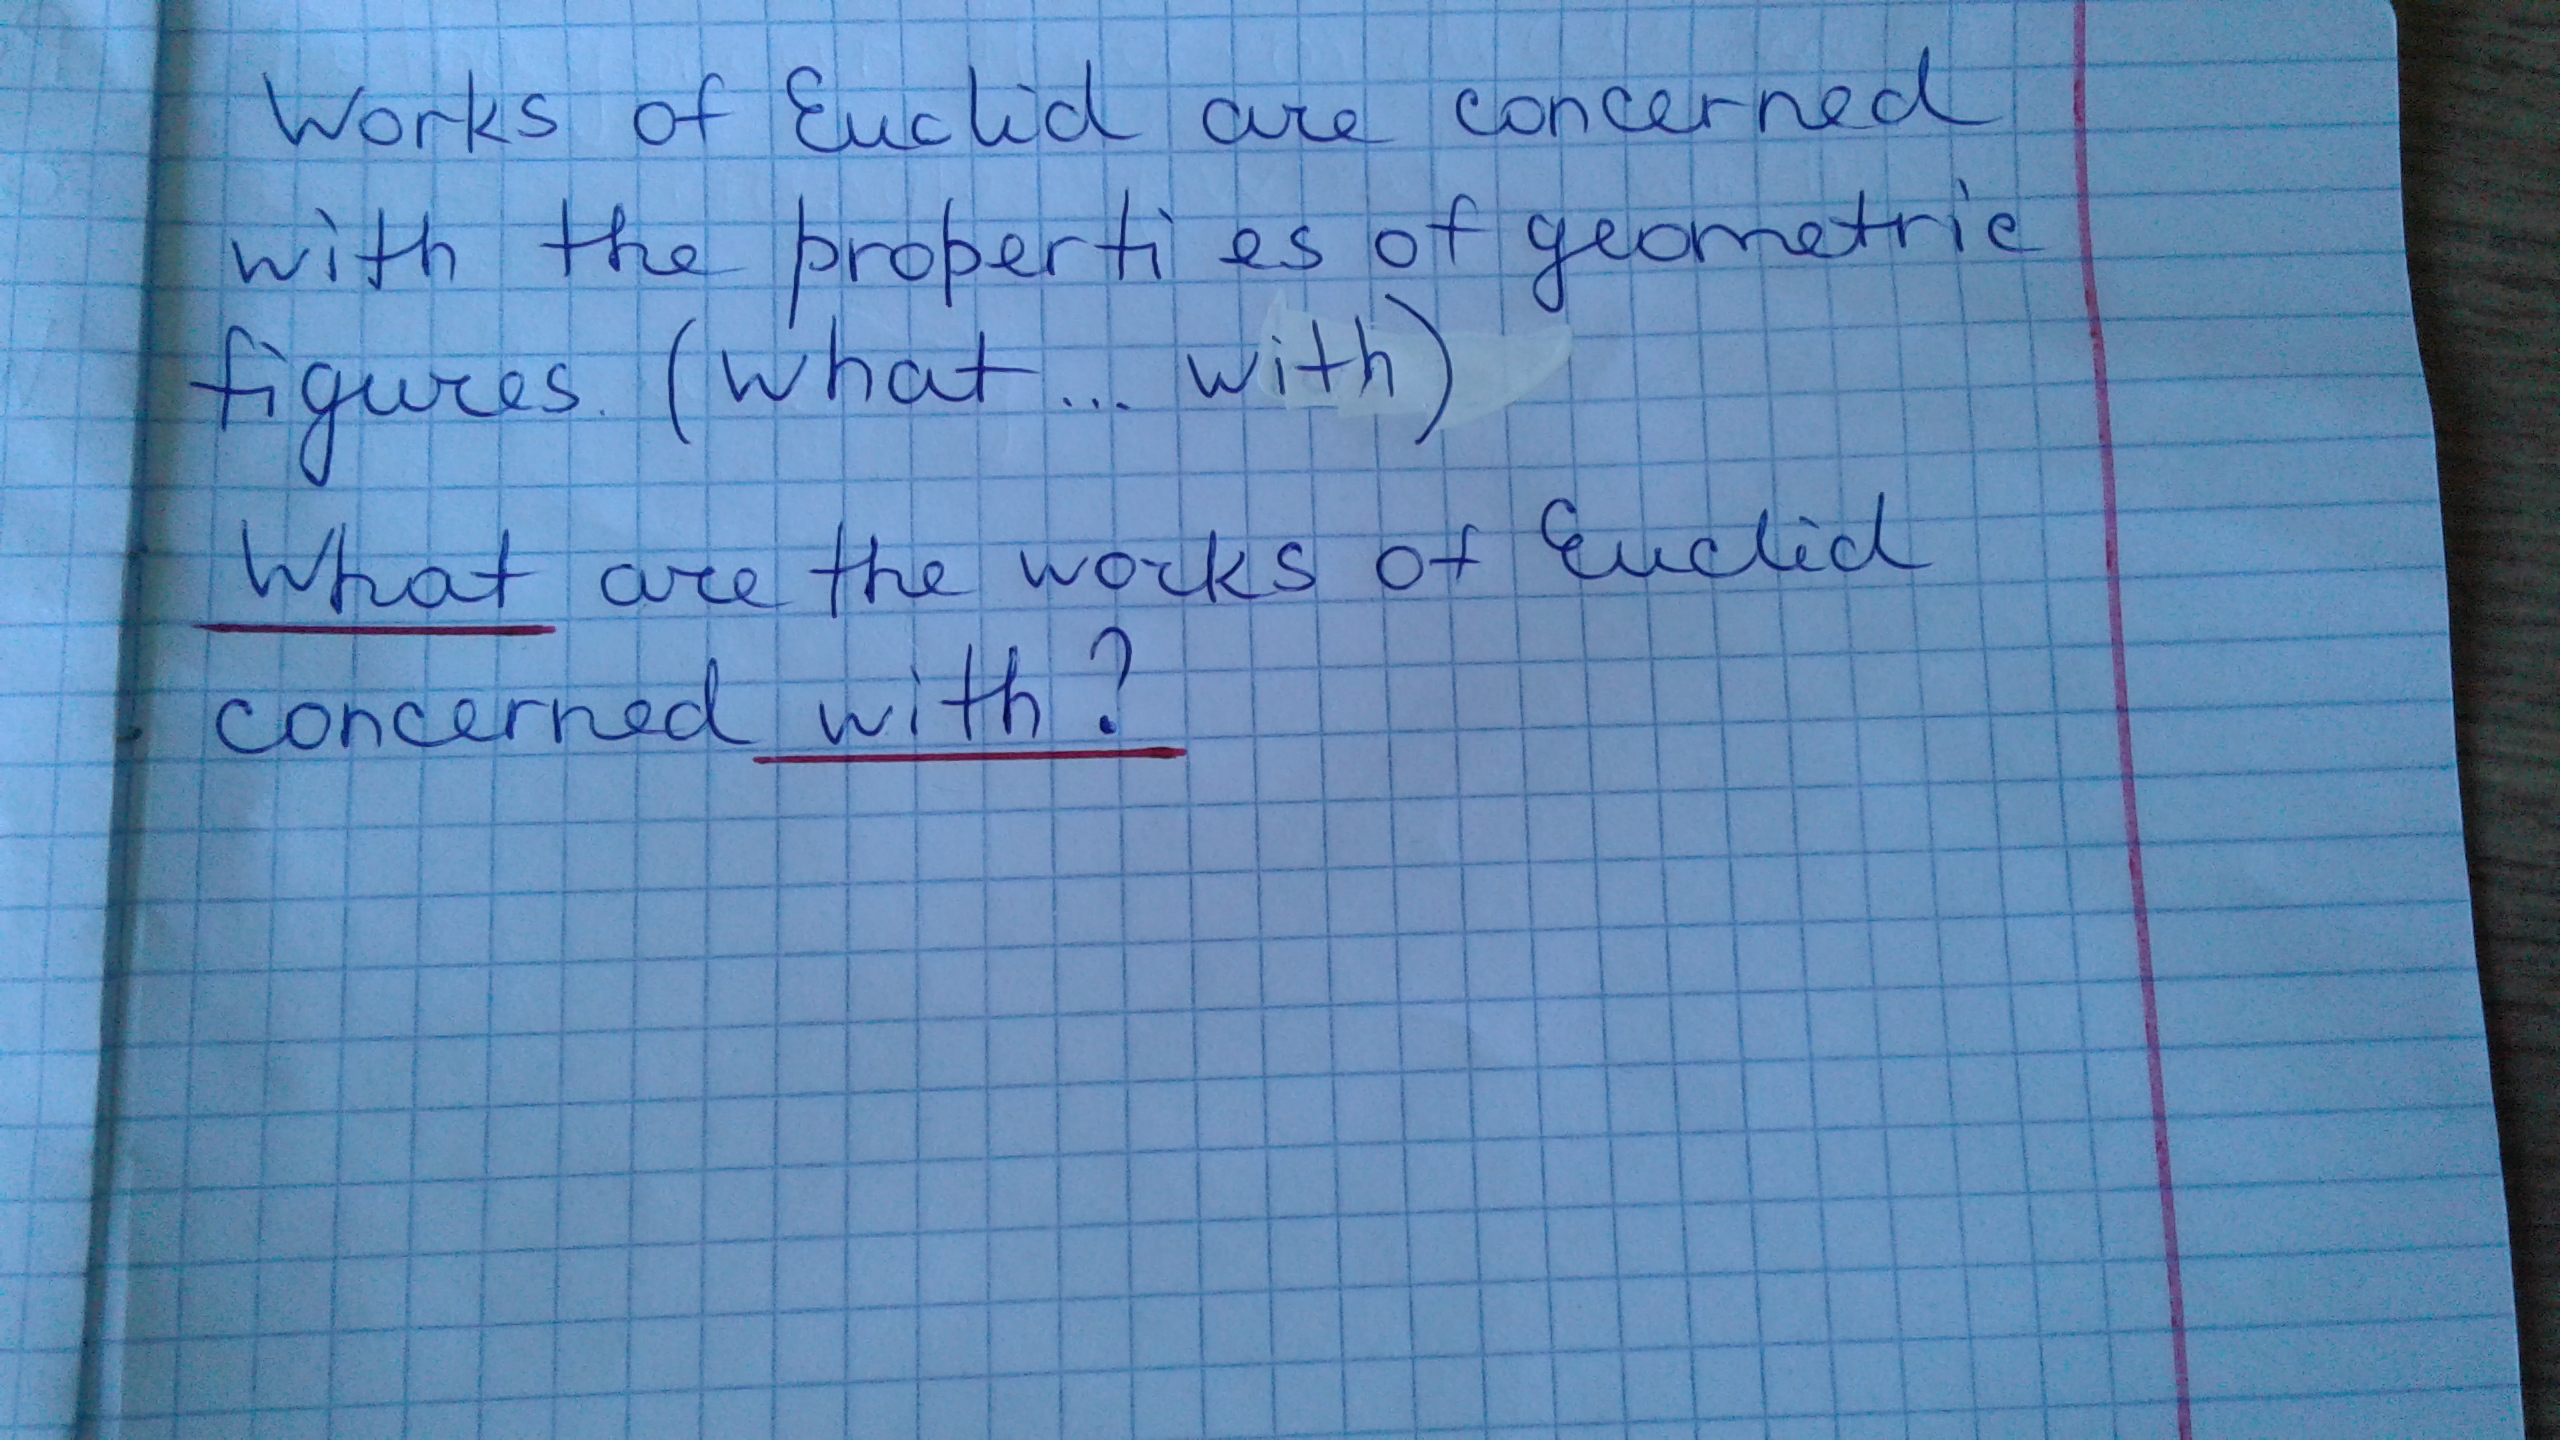 Works of Euclid are concerned
with the properties of geometric
figures. (what ... with)
What are the works of Euclid
concerned with?